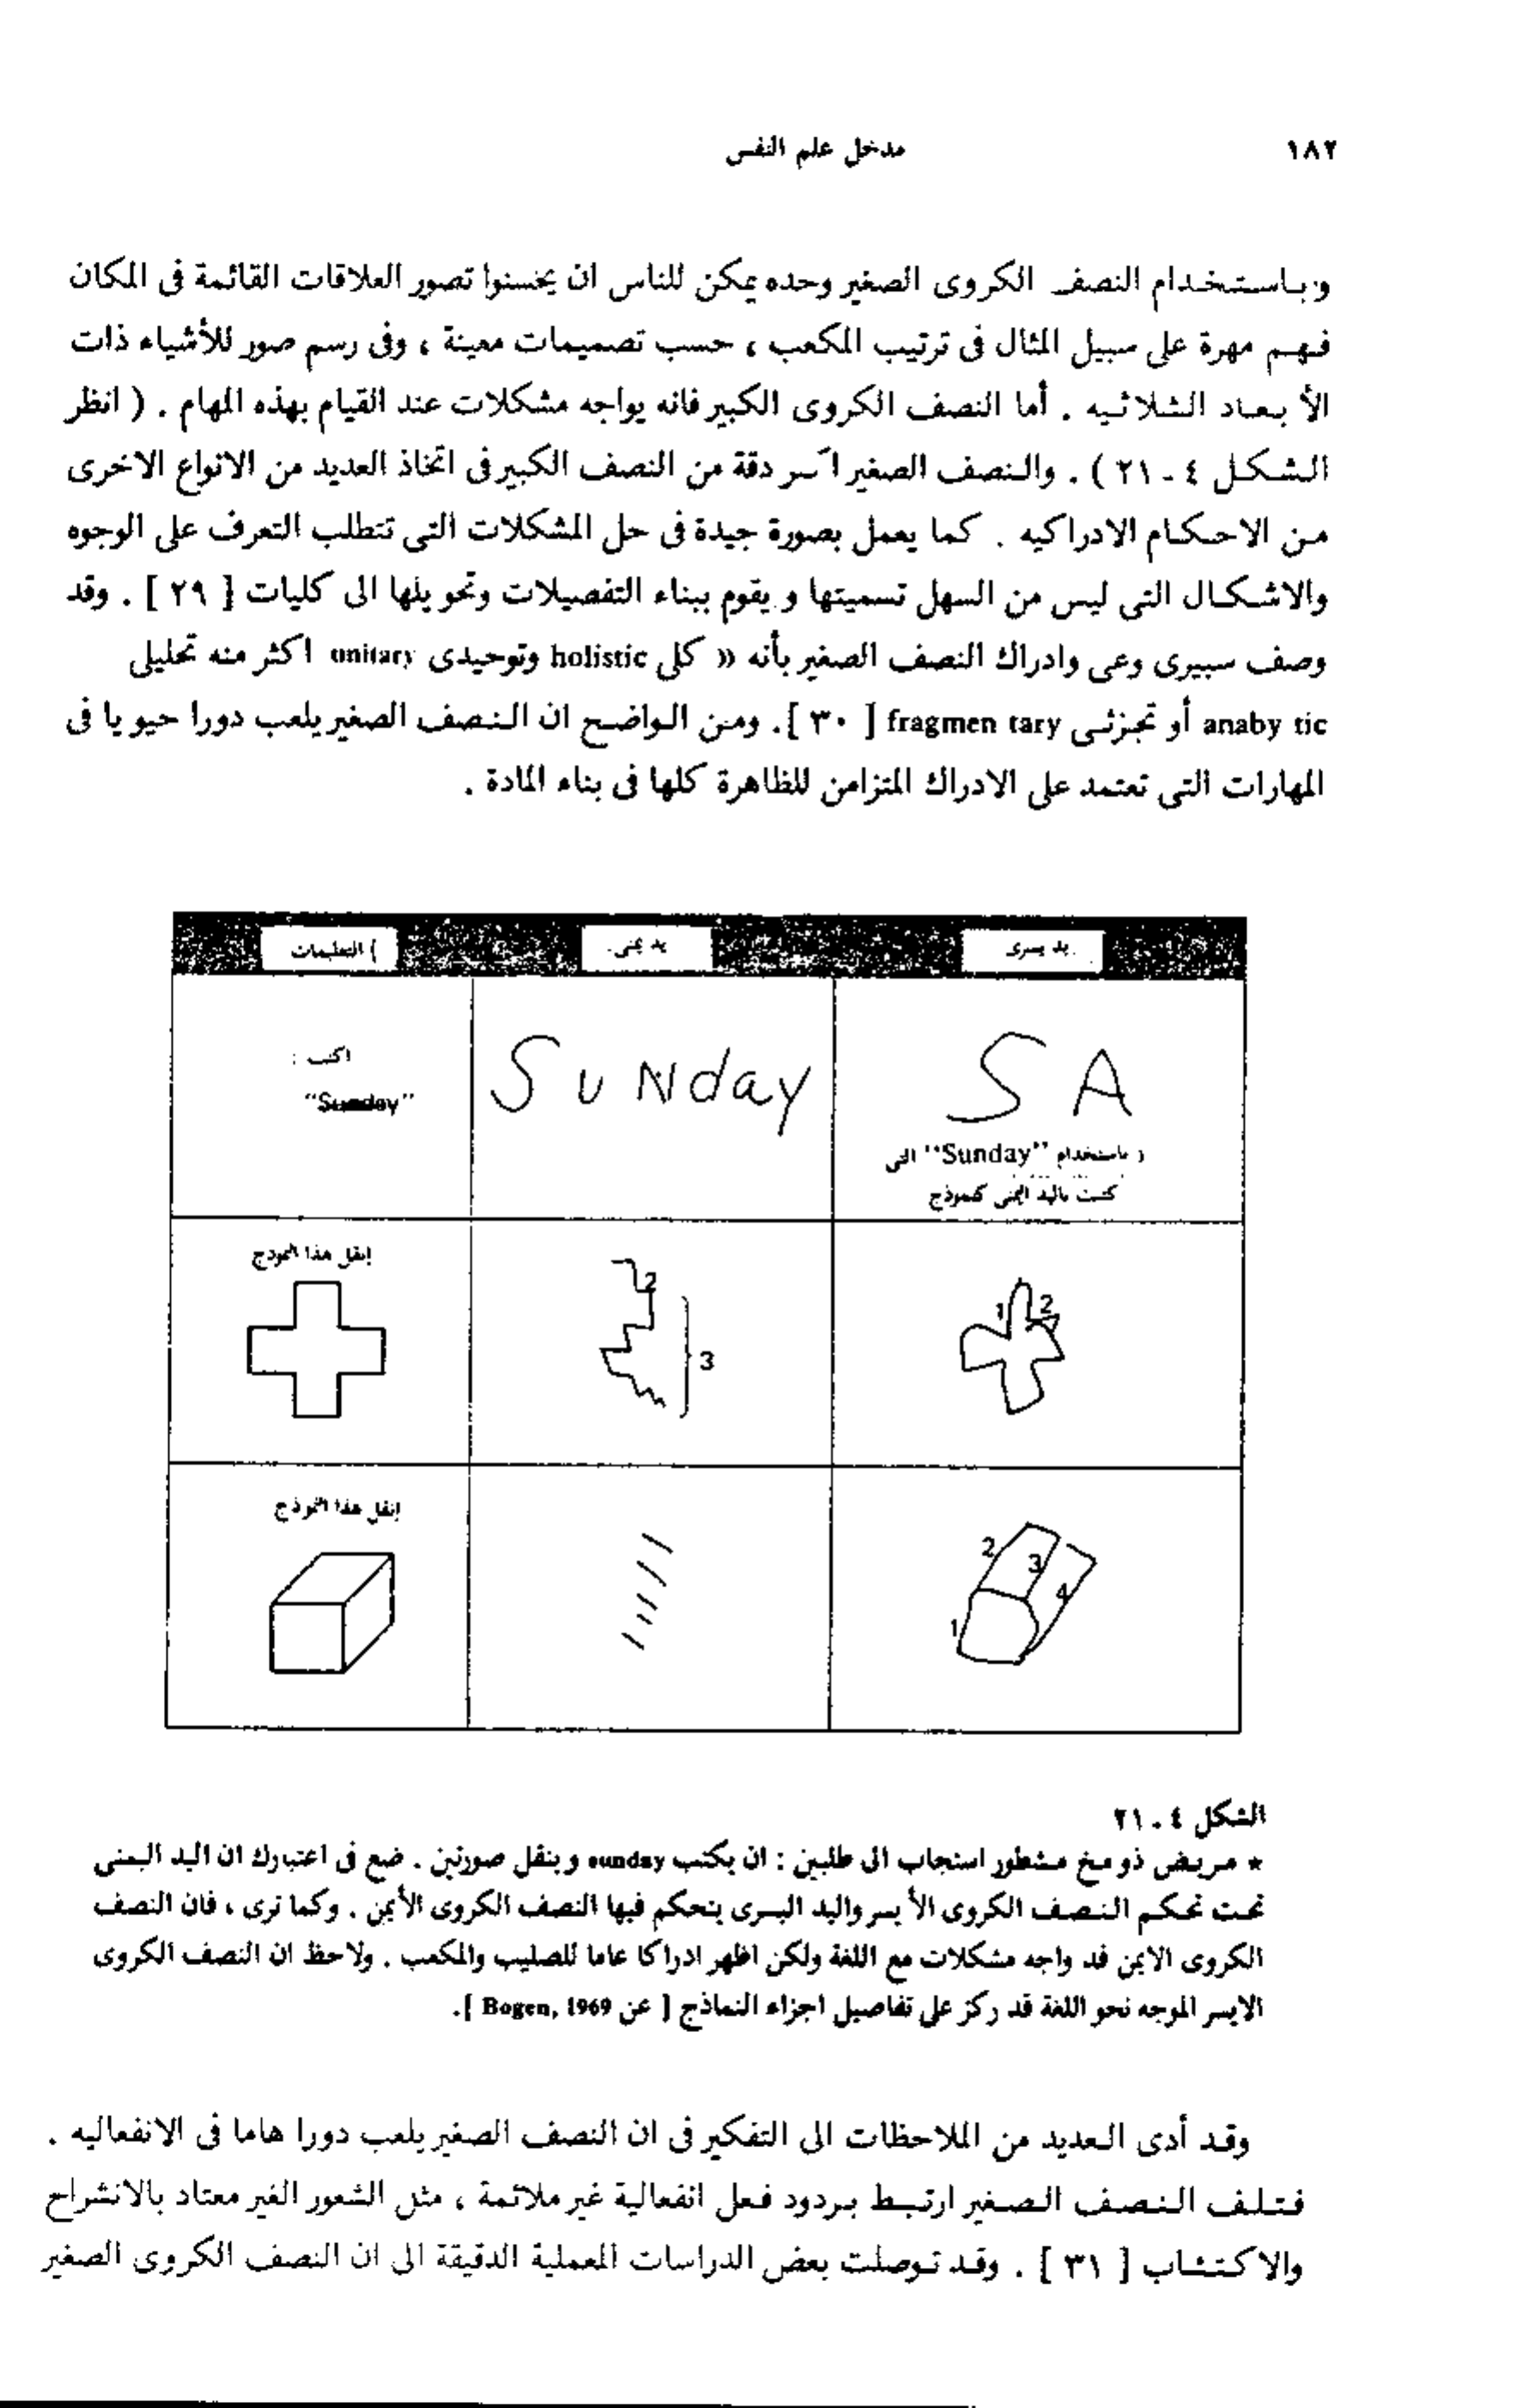 ١٨٢
مدخل علم النفس
وباستخدام النصف الكروى الصغير وحده يمكن للناس ان يحسنوا تصور العلاقات القائمة فى المكان
فهم مهرة على سبيل المثال فى ترتيب المكعب ، حسب تصميمات معينة ، وفى رسم صور للأشياء ذات
الأبعاد الثلاثيه . أما النصف الكروى الكبير فانه يواجه مشكلات عند القيام بهذه المهام . ( انظر
الشكل ٤ - ٢١ ) . والنصف الصغير دقة من النصف الكبير فى اتخاذ العديد من الانواع الاخرى
من الاحكام الادراكيه . كما يعمل بصورة جيدة فى حل المشكلات التى تتطلب التعرف على الوجوه
والاشكال التى ليس من السهل تسميتها ويقوم ببناء التفصيلات وتحويلها الى كليات [ ٢٩ ] . وقد
وصف سبيرى وعى وادراك النصف الصغير بأنه « كلى holistic وتوحيدى unitary اكثر منه تحليلى
anaby tic أو تجزئى fragmen tary [ ٣٠ ] . ومن الواضح ان النصف الصغير يلعب دورا حيويا فى
المهارات التى تعتمد على الادراك المتزامن للظاهرة كلها فى بناء المادة .
يد يسرى
يد يمنى
التعليمات
S A
Sunday
اكتب :
"Sunday"
باستخدام "Sunday" التى
كتبت باليد اليمنى كنموذج
إنقل هذا النموذج
2
3
1 2
إنقل هذا النموذج
2 3 4 1
الشكل ٤ - ٢١
* مريض ذو مخ مشطور استجاب الى طلبين : ان يكتب sunday وينقل صورتين . ضع فى اعتبارك ان اليد اليمنى
تحت تحكم النصف الكروى الأيسر واليد اليسرى يتحكم فيها النصف الكروى الأيمن . وكما ترى ، فان النصف
الكروى الايمن قد واجه مشكلات مع اللغة ولكن اظهر ادراكا عاما للصليب والمكعب . ولاحظ ان النصف الكروى
الايسر الموجه نحو اللغة قد ركز على تفاصيل اجزاء النماذج [ عن Bogen, 1969 ] .
وقد أدى العديد من الملاحظات الى التفكير فى ان النصف الصغير يلعب دورا هاما فى الانفعاليه .
فتلف النصف الصغير ارتبط بردود فعل انفعالية غير ملائمة ، مثل الشعور الغير معتاد بالانشراح
والاكتئاب [ ٣١ ] . وقد توصلت بعض الدراسات المعملية الدقيقة الى ان النصف الكروى الصغير